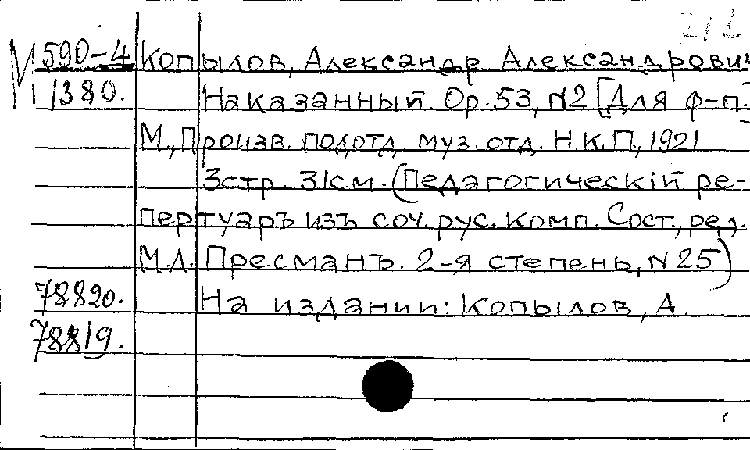 М 590-4 Копылов, Александр Александрович
1380. Наказанный. Op. 53, N2 [Для ф-п]
М., Произв. подотд. муз. отд. Н.К.П, 1921
3стр. 31см. (Педагогическій ре-
пертуаръ изъ соч. рус. комп. Сост., ред.
М.Л. Пресманъ. 2-я степень, N25)
78820. На издании: Копылов, А.
78819.